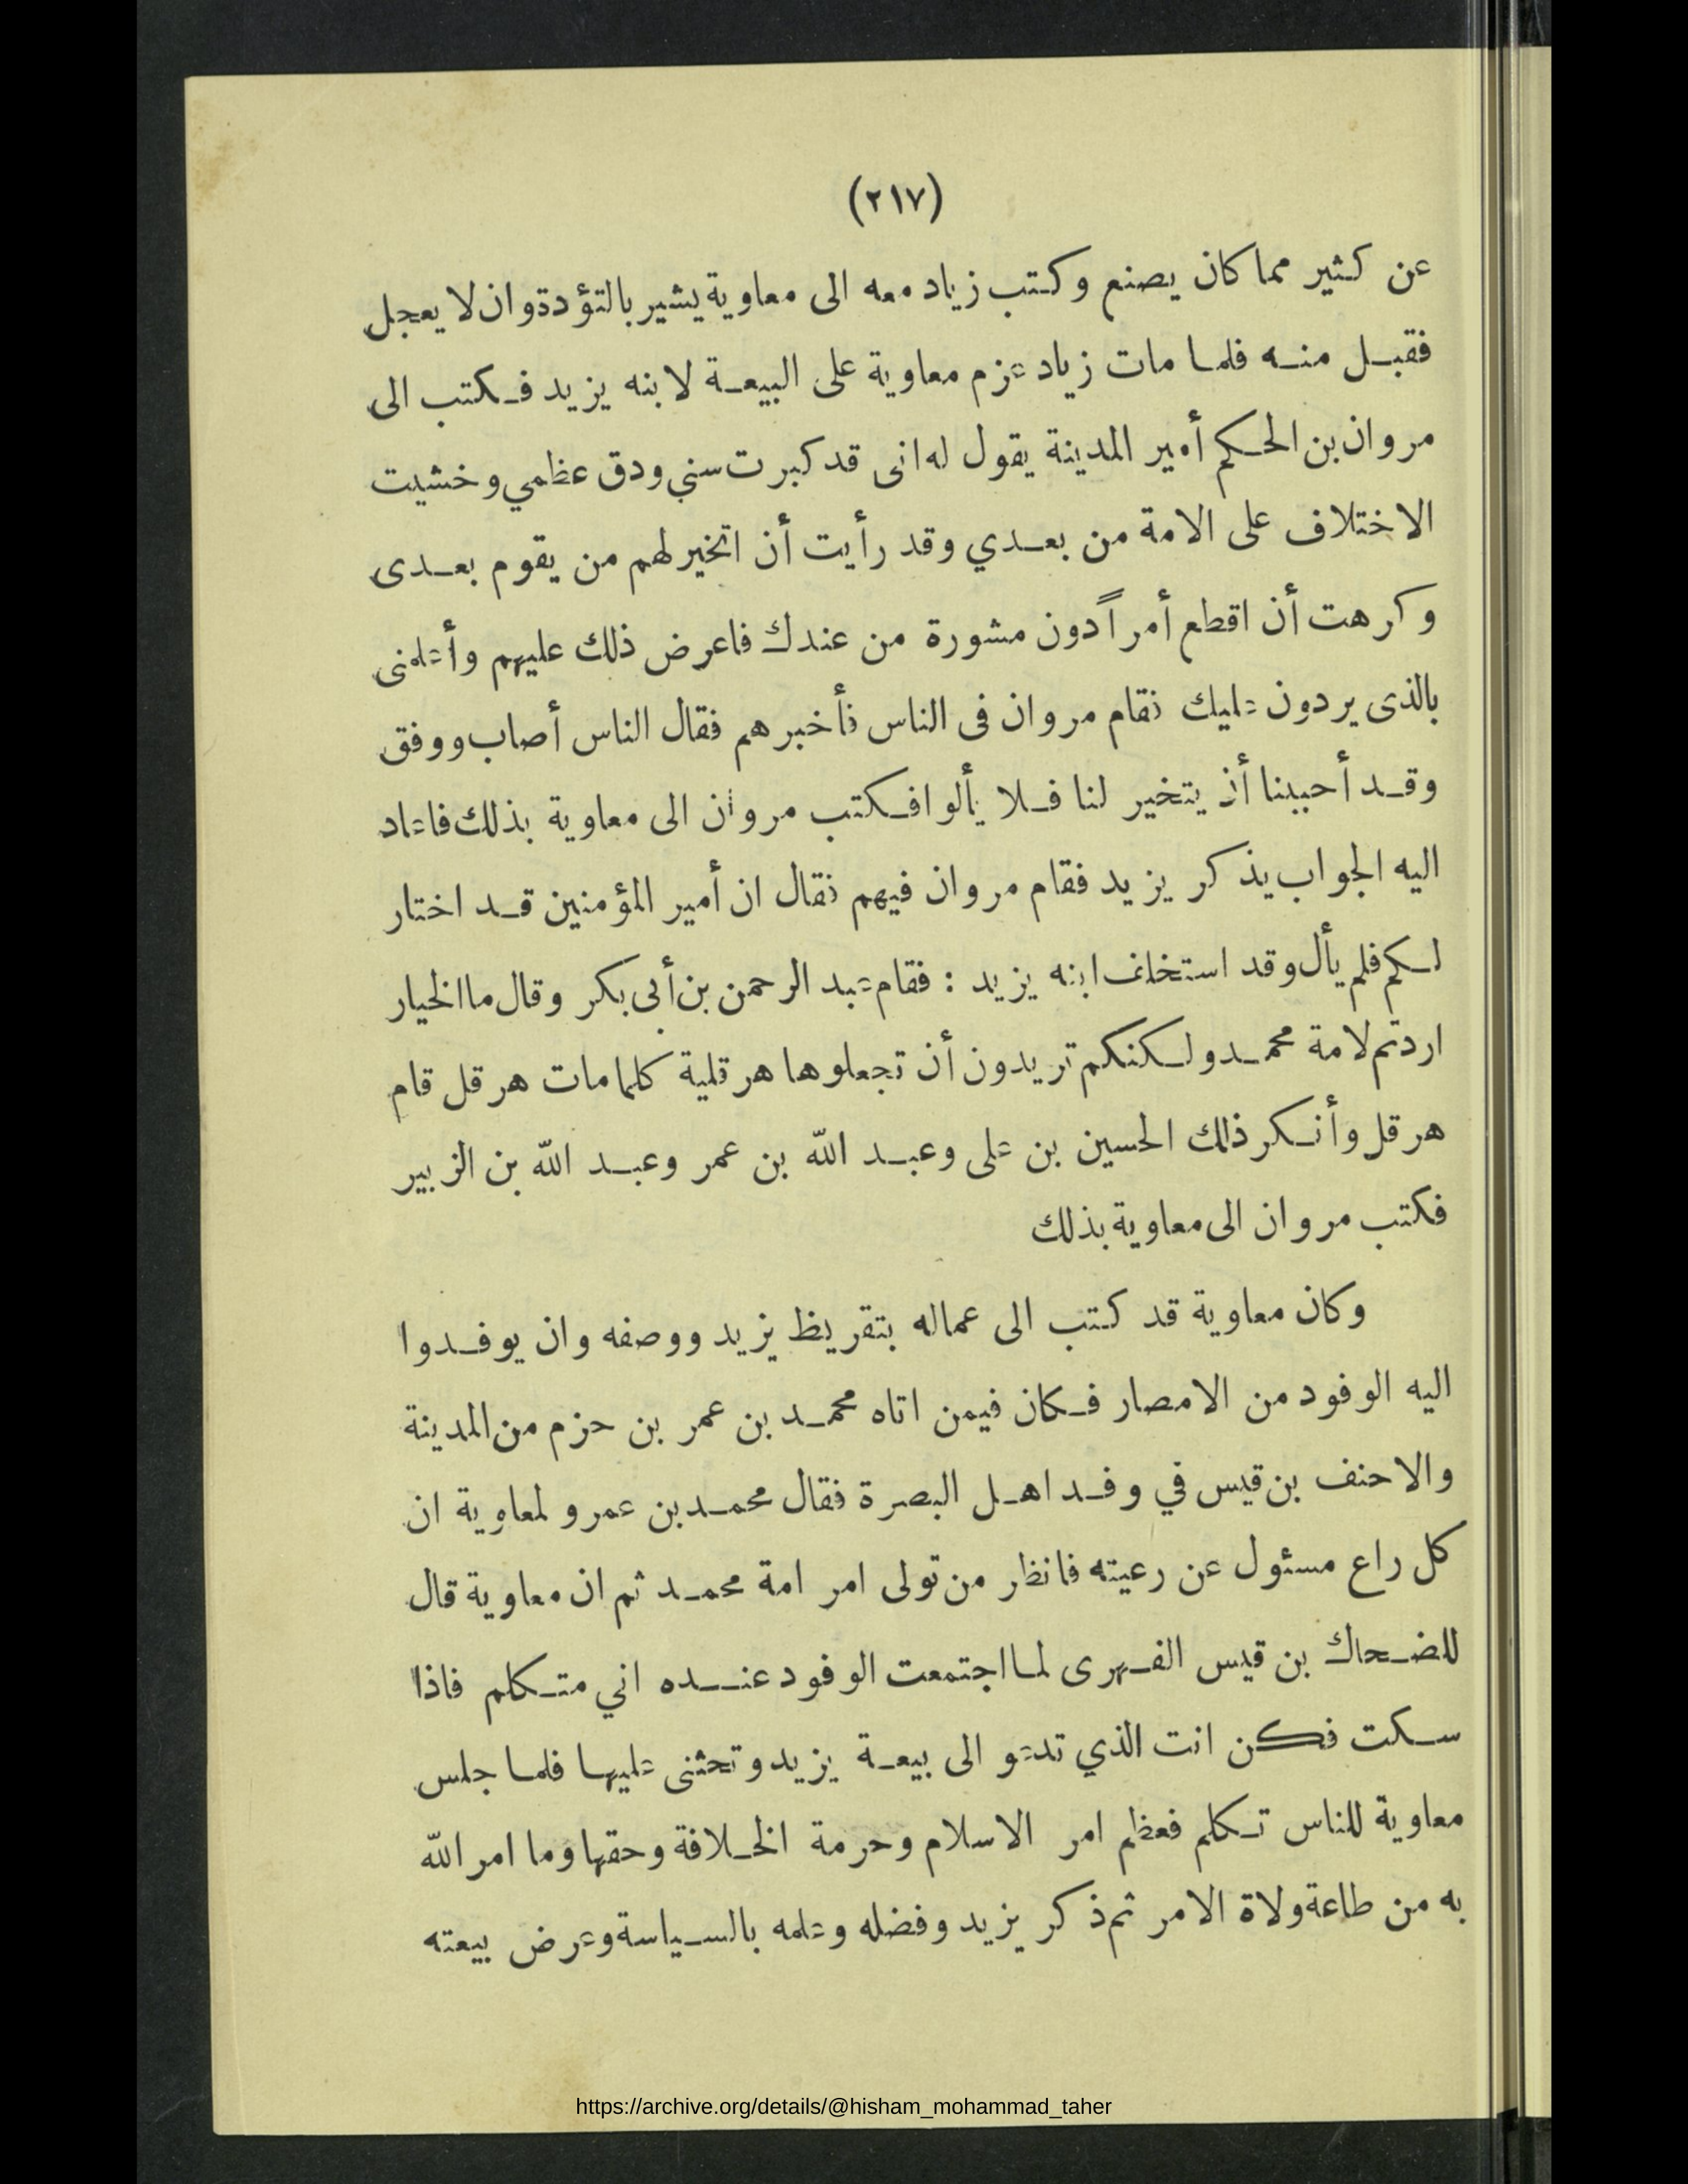 (٢١٧)
عن كثير مما كان يصنع وكتب زياد معه الى معاوية يشير بالتؤدة وان لا يعجل
فقبل منه فلما مات زياد عزم معاوية على البيعة لابنه يزيد فكتب الى
مروان بن الحكم أمير المدينة يقول له انى قد كبرت سني ودق عظمي وخشيت
الاختلاف على الامة من بعدي وقد رأيت أن اتخير لهم من يقوم بعدى
وكرهت أن اقطع أمراً دون مشورة من عندك فاعرض ذلك عليهم وأعلمنى
بالذى يردون عليك فقام مروان فى الناس فأخبرهم فقال الناس أصاب ووفق
وقد أحببنا أن يتخير لنا فلا يألوا فكتب مروان الى معاوية بذلك فاعاد
اليه الجواب يذكر يزيد فقام مروان فيهم فقال ان أمير المؤمنين قد اختار
لكم فلم يأل وقد استخلف ابنه يزيد : فقام عبد الرحمن بن أبى بكر وقال ما الخيار
اردتم لامة محمد ولكنكم تريدون أن تجعلوها هرقلية كلما مات هرقل قام
هرقل وأنكر ذلك الحسين بن على وعبد الله بن عمر وعبد الله بن الزبير
فكتب مروان الى معاوية بذلك
وكان معاوية قد كتب الى عماله بتقريظ يزيد ووصفه وان يوفدوا
اليه الوفود من الامصار فكان فيمن اتاه محمد بن عمر بن حزم من المدينة
والاحنف بن قيس في وفد اهل البصرة فقال محمد بن عمرو لمعاوية ان
كل راع مسئول عن رعيته فانظر من تولى امر امة محمد ثم ان معاوية قال
للضحاك بن قيس الفهرى لما اجتمعت الوفود عنده اني متكلم فاذا
سكت فكن انت الذي تدعو الى بيعة يزيد وتحثنى عليها فلما جلس
معاوية للناس تكلم فعظم امر الاسلام وحرمة الخلافة وحقها وما امر الله
به من طاعة ولاة الامر ثم ذكر يزيد وفضله وعلمه بالسياسة وعرض بيعته
https://archive.org/details/@hisham_mohammad_taher